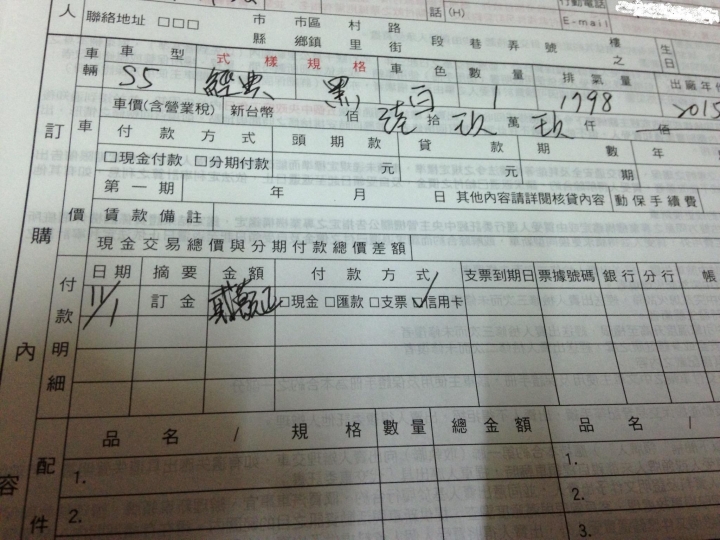 人 聯絡地址 □□□ 市 縣 市區 鄉鎮 村 里 路 街 段 巷 弄 號 樓 之 話(H) 行動電話 E-mail 生日
車輛 車型 式樣規格 車色 數量 排氣量 出廠年
S5 經典 黑 白 1 1798 2015
車價(含營業稅) 新台幣 佰 拾 玖 萬 玖 仟 佰
訂購內容
車價 付款方式 頭期款 貸款 期數 年
□現金付款 □分期付款 元 元 期
第一期 年 月 日 其他內容請詳閱核貸內容 動保手續費
貸款備註
現金交易總價與分期付款總價差額
付款明細 日期 摘要 金額 付款方式 支票到期日 票據號碼 銀行 分行 帳
11/1 訂金 □現金 □匯款 □支票 ☑信用卡
配件 品名 / 規格 數量 總金額 品名 /
1. 1.
2. 2.
3.